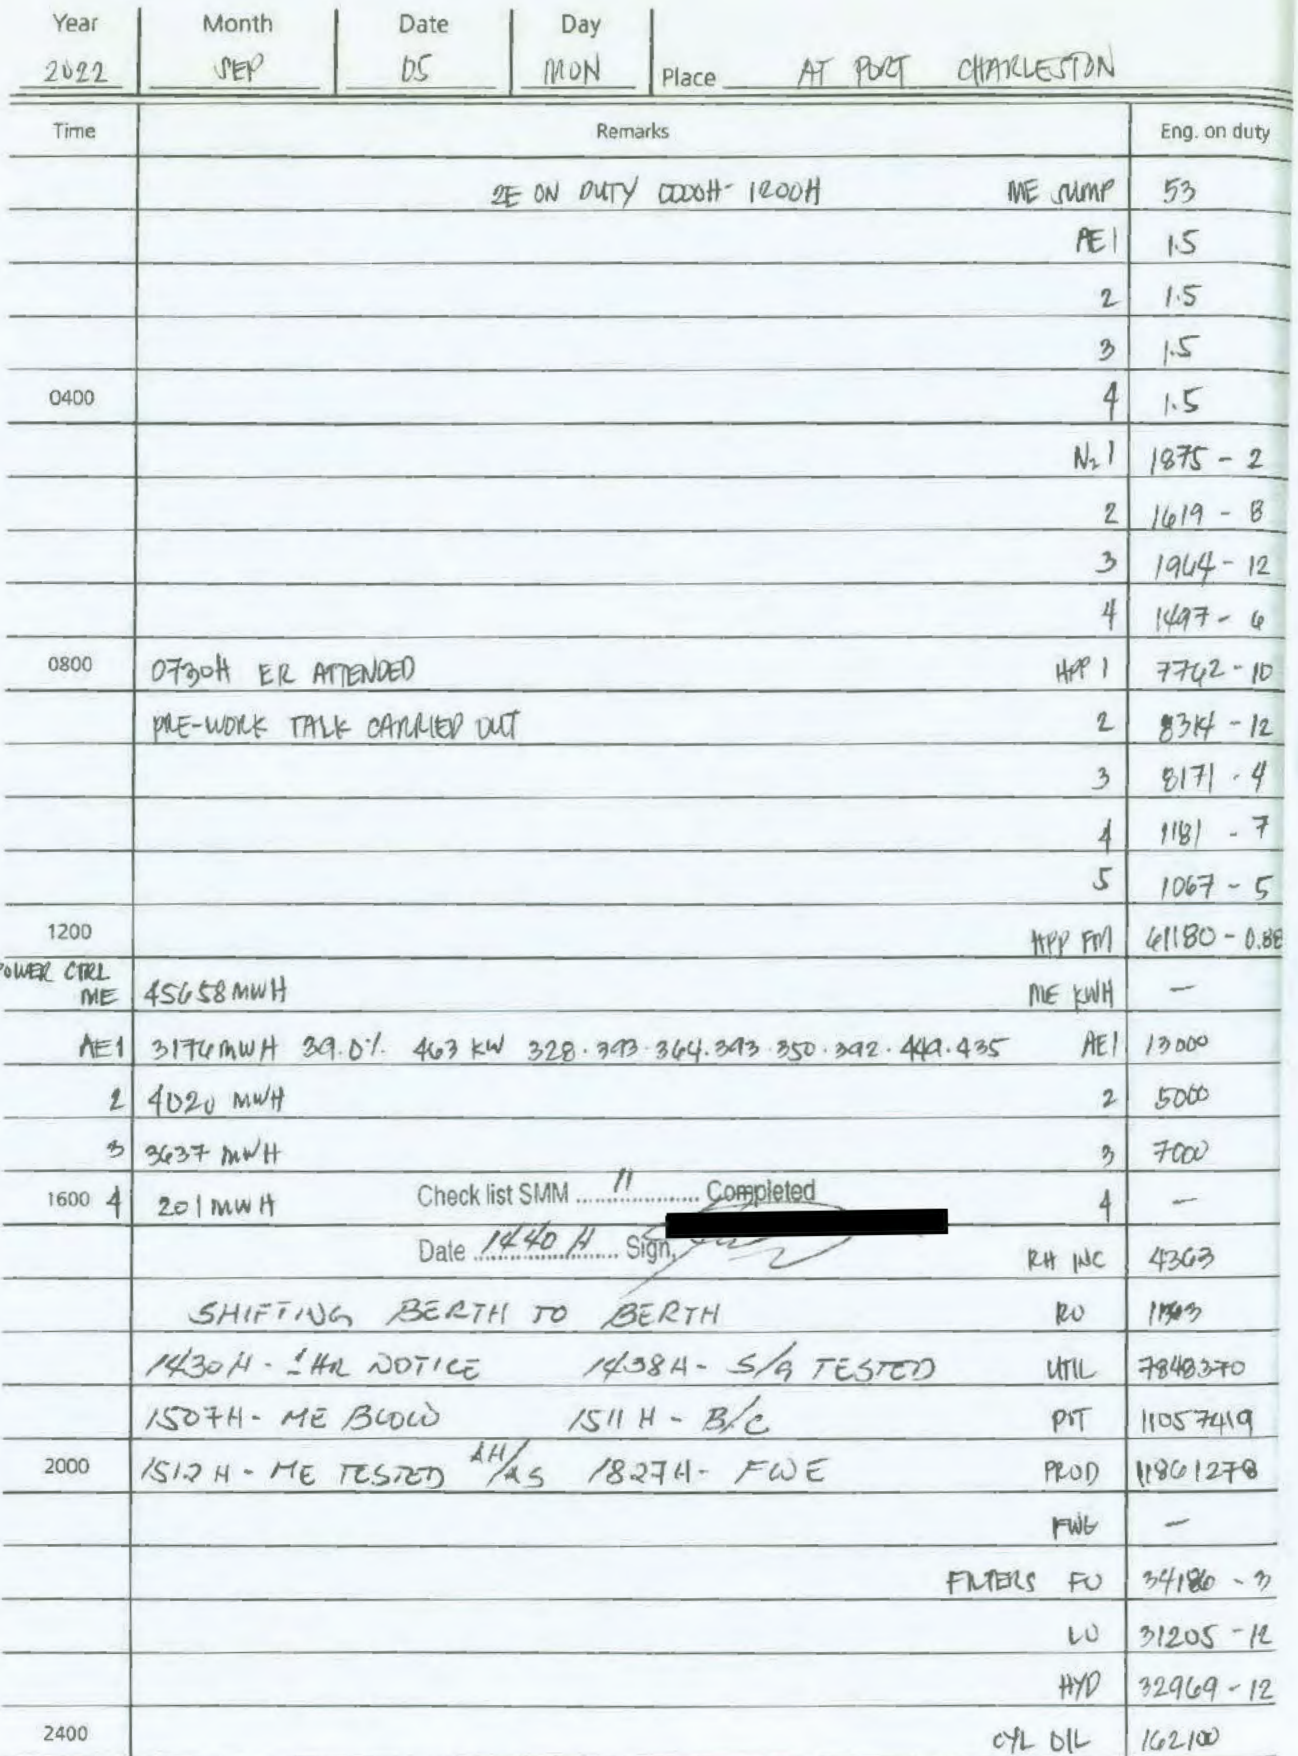 Year Month Date Day
2022 SEP 05 MON Place AT PORT CHARLESTON
Time Remarks Eng. on duty
2E ON DUTY 0000H- 1200H ME SUMP 53
AE1 1.5
2 1.5
3 1.5
0400 4 1.5
N2 1 1875 - 2
2 1619 - 8
3 1964 - 12
4 1497 - 6
0800 0730H ER ATTENDED HPP 1 7762 - 10
PRE-WORK TALK CARRIED OUT 2 8314 - 12
3 8171 - 4
4 1181 - 7
5 1067 - 5
1200 HPP FM 61180 - 0.88
POWER CTRL
ME 45658 MWH ME KWH —
AE1 3176MWH 39.0% 463 KW 328.393.364.393.350.392.449.435 AE1 13000
2 4020 MWH 2 5000
3 3637 MWH 3 7000
1600 4 201 MWH Check list SMM 11 Completed 4 —
Date 1440 H Sign, RH INC 4363
SHIFTING BERTH TO BERTH RO
1430H - 1 HR NOTICE 1438H - S/G TESTED UTIL 7848370
1507H - ME BLOW 1511 H - B/C PIT 11057419
2000 1512 H - ME TESTED AH/AS 1827H - FWE PROD 11861278
FWG —
FILTERS FO 34186 - 3
LO 31205 - 12
HYD 32969 - 12
2400 CYL OIL 162100